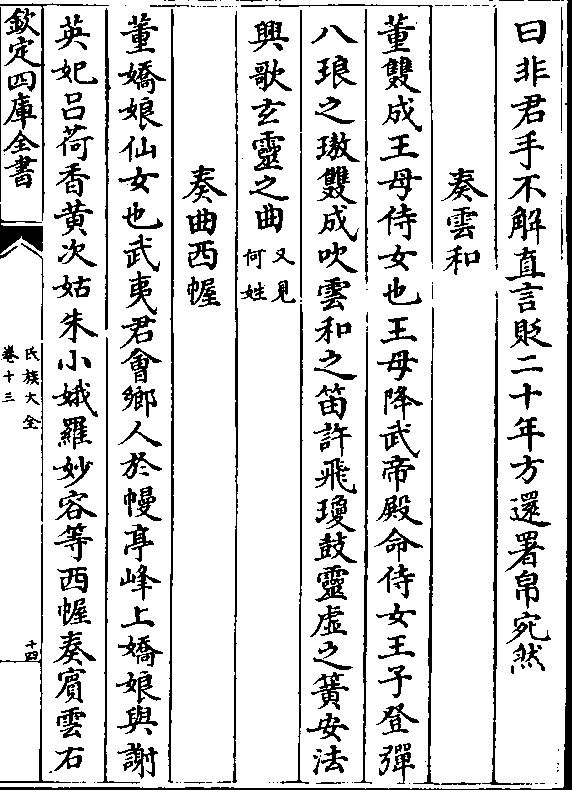 曰非君手不解直言貶二十年方還署帛宛然
奏雲和
董雙成王母侍女也王母降武帝殿命侍女王子登彈
八琅之璈雙成吹雲和之笛許飛瓊鼓靈虛之簧安法
興歌玄靈之曲又見何姓
奏曲西幄
董嬌娘仙女也武夷君會鄉人於幔亭峰上嬌娘與謝
英妃吕荷香黄次姑朱小娥羅妙容等西幄奏賓雲石
欽定四庫全書
氏族大全
卷十三
十四